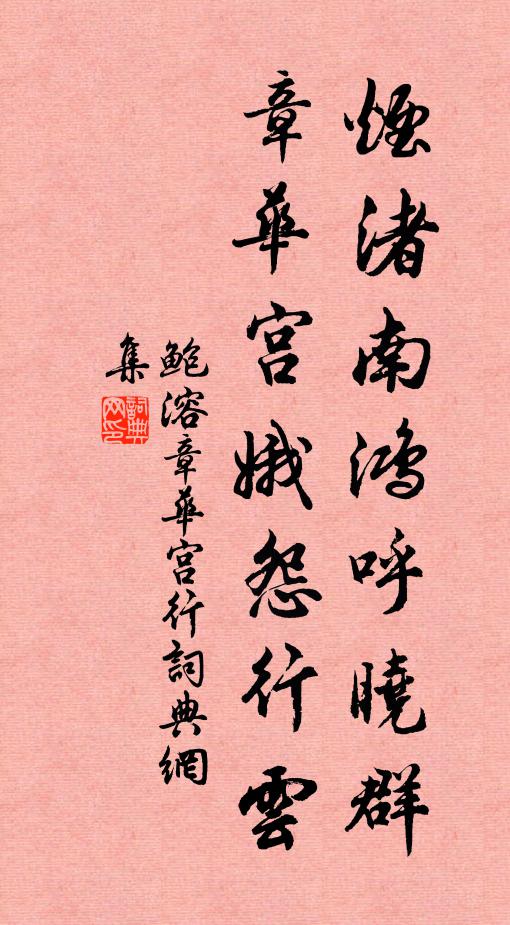 煙渚南鴻呼曉群
章華宮娥怨行雲
鮑溶章華宮行詞典網
集
詞典
网印